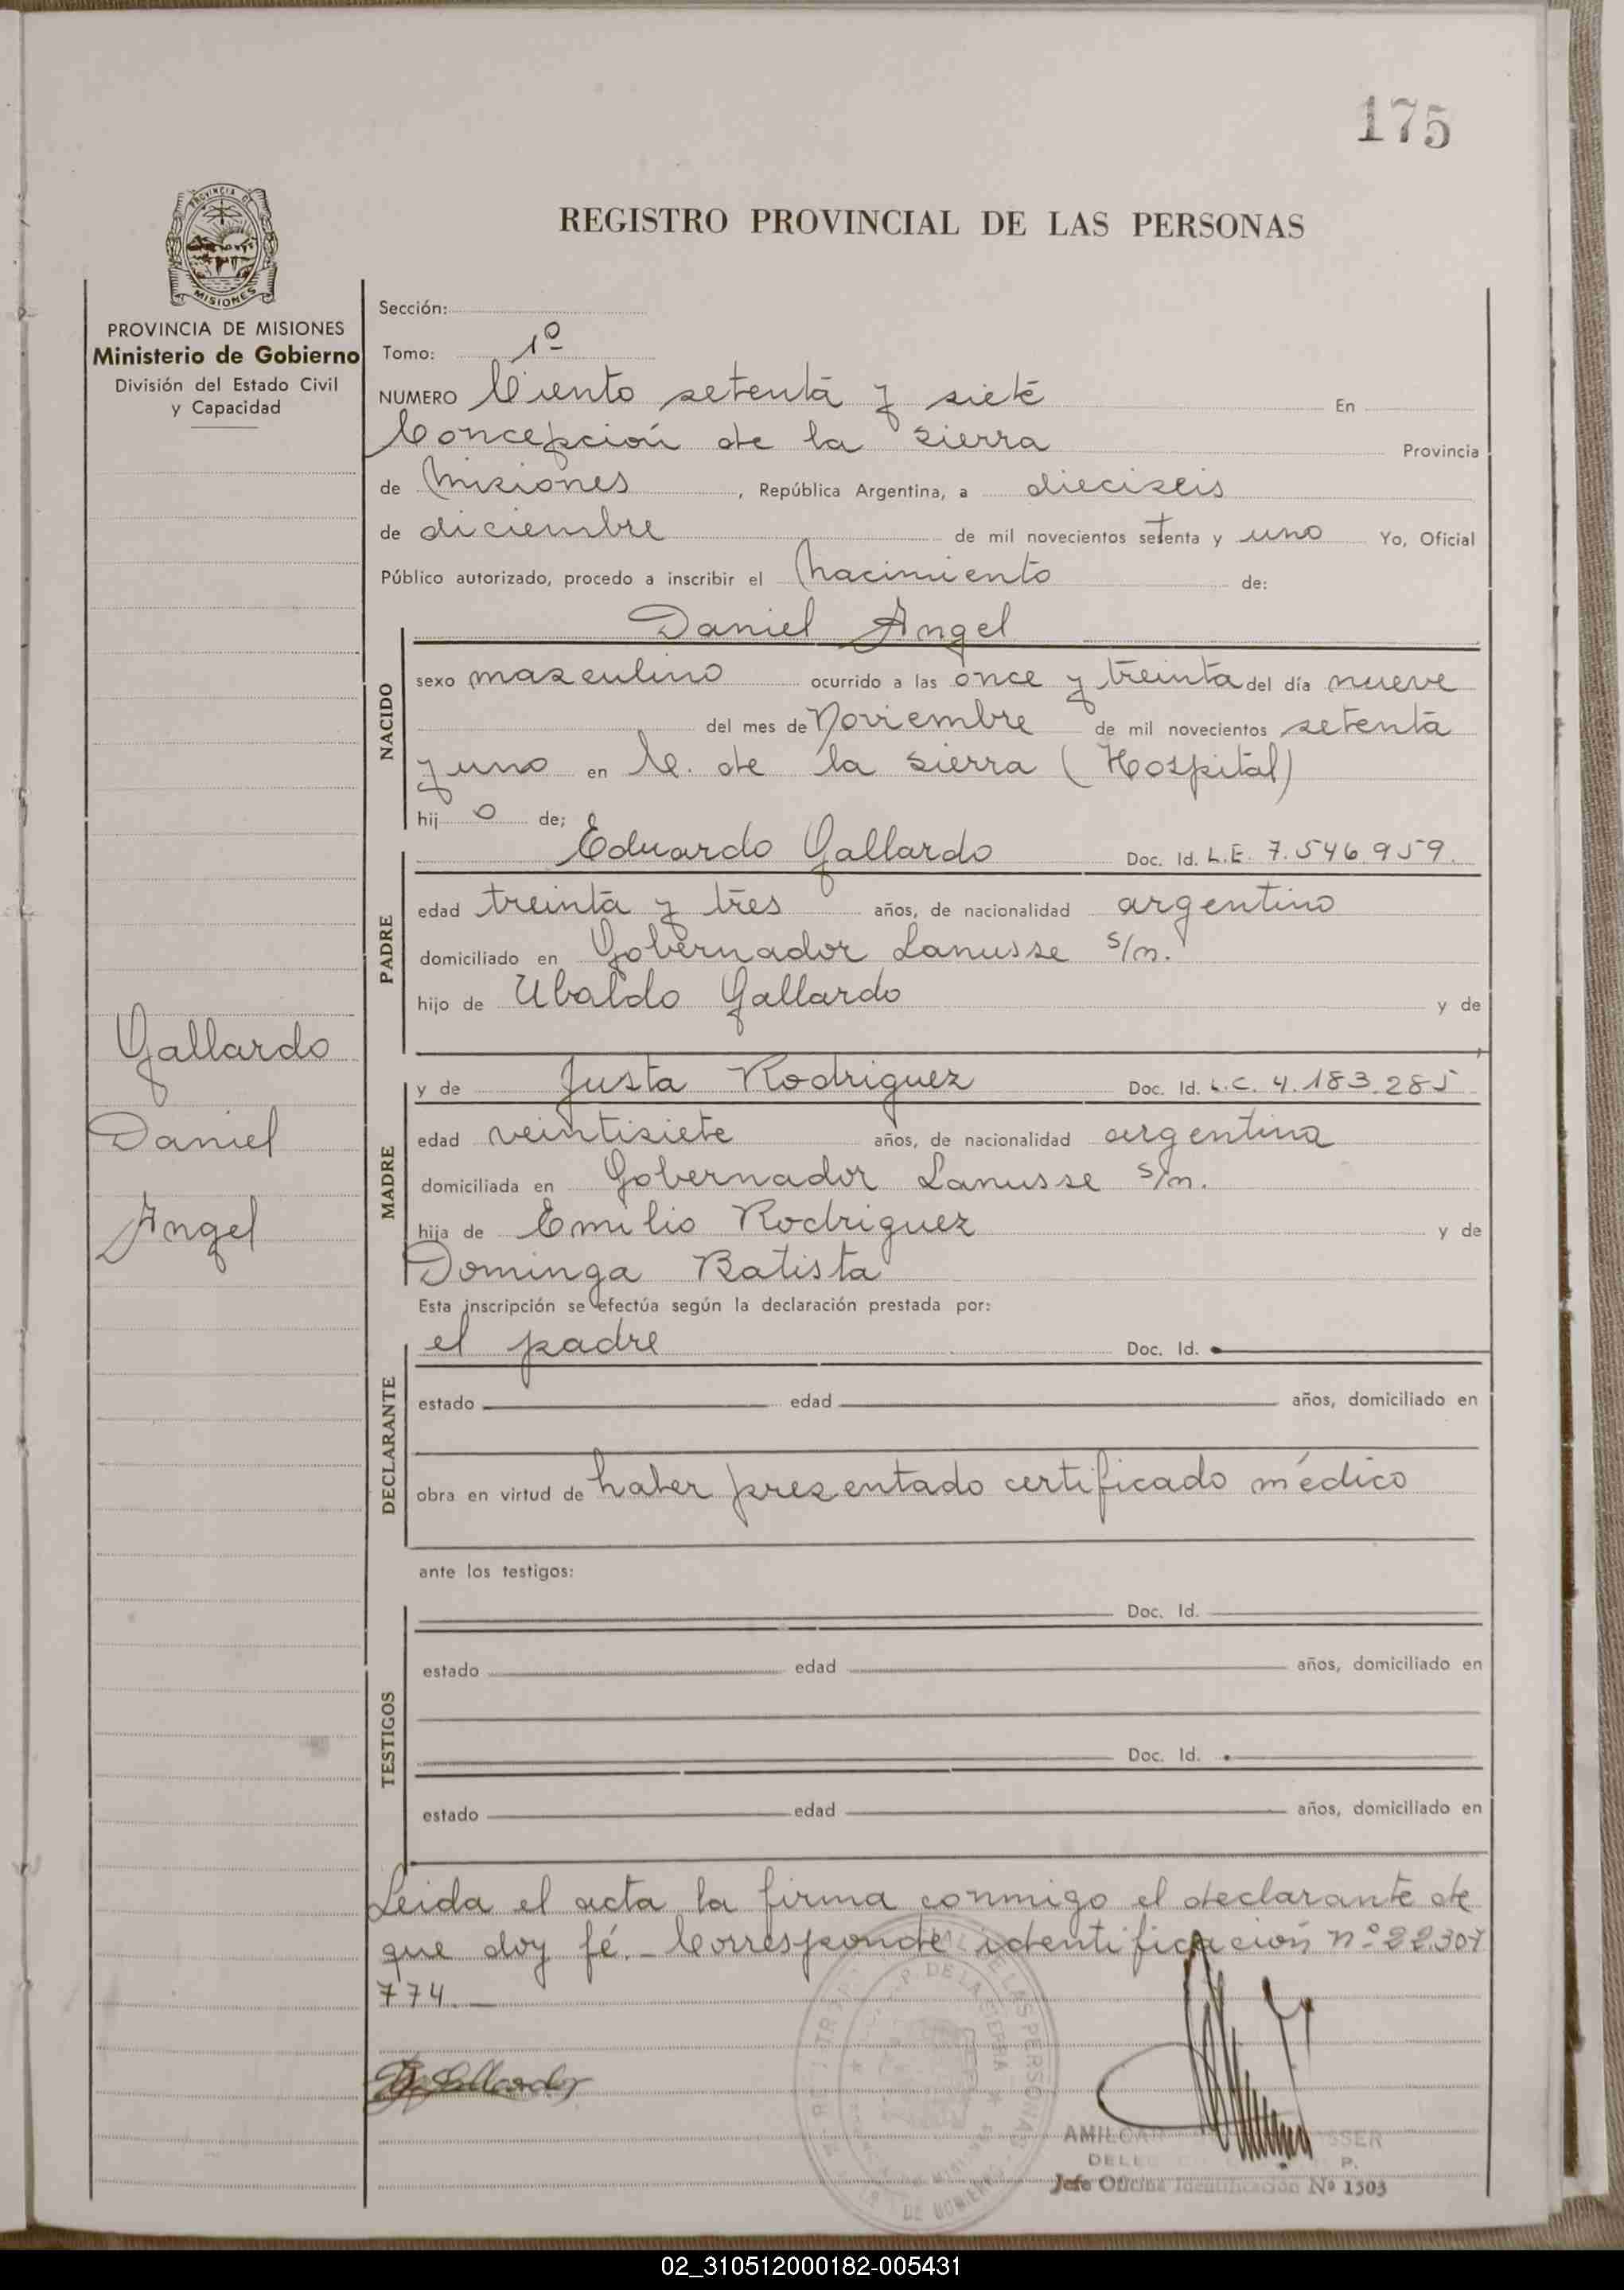 175
PROVINCIA DE
MISIONES
REGISTRO PROVINCIAL DE LAS PERSONAS
PROVINCIA DE MISIONES
Ministerio de Gobierno
División del Estado Civil
y Capacidad
Gallardo
Daniel
Angel
Sección:
Tomo: 1º
NUMERO Ciento setenta y siete En
Concepción de la Sierra Provincia
de Misiones, República Argentina, a dieciseis
de diciembre de mil novecientos setenta y uno Yo, Oficial
Público autorizado, procedo a inscribir el Nacimiento de:
Daniel Angel
NACIDO
sexo masculino ocurrido a las once y treinta del día nueve
del mes de Noviembre de mil novecientos setenta
y uno en C. de la Sierra (Hospital)
hij o de;
Eduardo Gallardo Doc. Id. L.E. 7.546.959.
PADRE
edad treinta y tres años, de nacionalidad argentino
domiciliado en Gobernador Lanusse s/n.
hijo de Ubaldo Gallardo y de
y de Justa Rodriguez Doc. Id. L.C. 4.183.285
MADRE
edad veintisiete años, de nacionalidad argentina
domiciliada en Gobernador Lanusse s/n.
hija de Emilio Rodriguez y de
Dominga Batista
Esta inscripción se efectúa según la declaración prestada por:
el padre Doc. Id.
DECLARANTE
estado edad años, domiciliado en
obra en virtud de haber presentado certificado médico
ante los testigos:
Doc. Id.
TESTIGOS
estado edad años, domiciliado en
Doc. Id.
estado edad años, domiciliado en
Leida el acta la firma conmigo el declarante de
que doy fé.- Corresponde identificación nº 22.307
774.
AMILCAR SSER
P.
Jefe Oficina Identificación Nº 1503
02_310512000182-005431